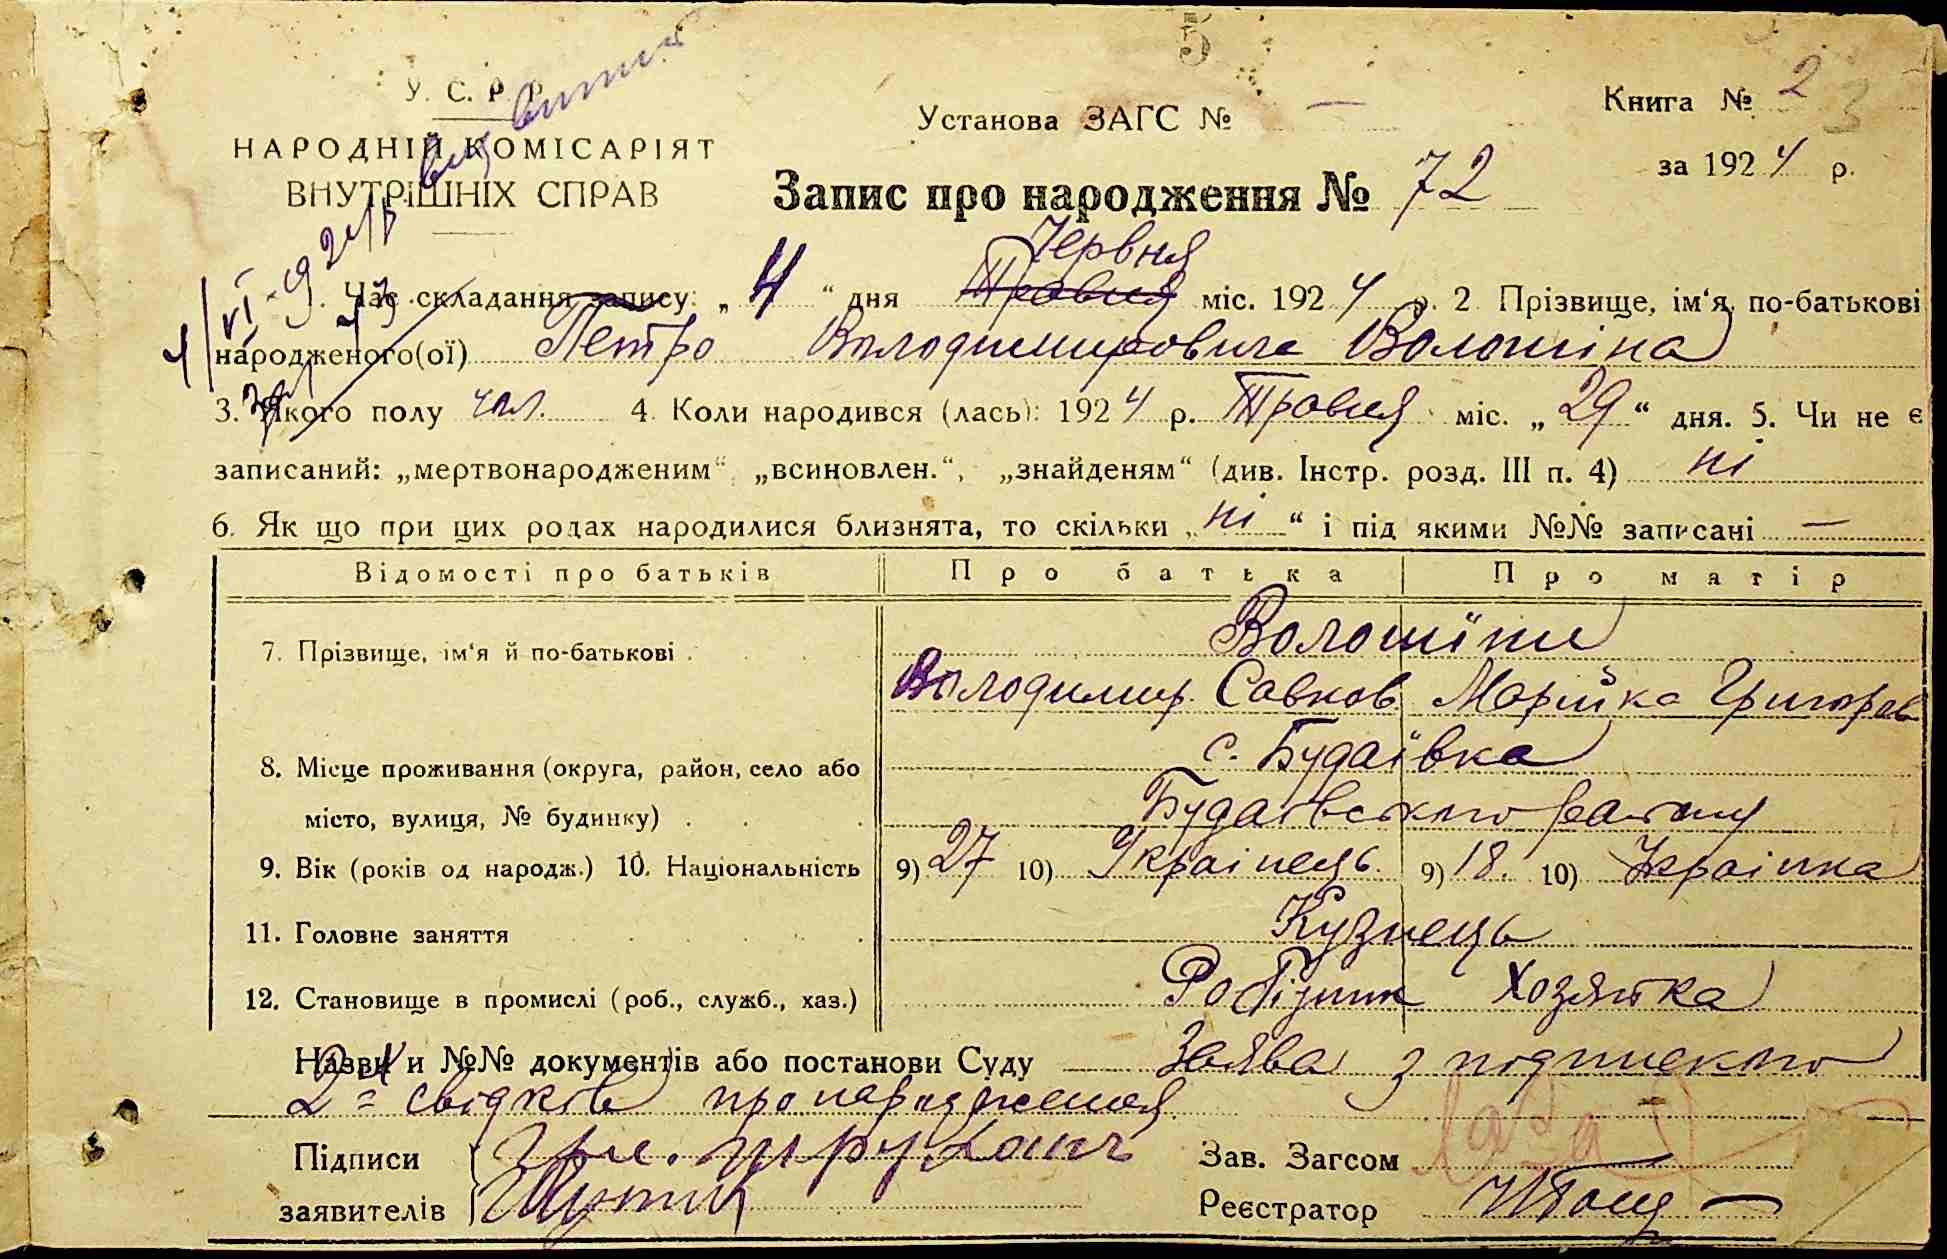 5
У. С. Р. Р.
НАРОДНІЙ КОМІСАРІЯТ
ВНУТРІШНІХ СПРАВ
Установа ЗАГС № —
Книга № 2 3
за 1924 р.
Запис про народження № 72
Червня
Час складання запису: „4“ дня Травня міс. 1924 р. 2 Прізвище, ім‘я, по-батькові
народженого(ої) Петро Володимирович Волошіна
3. Якого полу чол. 4. Коли народився (лась): 1924 р. Травня міс. „29“ дня. 5. Чи не є
записаний: „мертвонародженим“, „всиновлен.“, „знайденям“ (див. Інстр. розд. III п. 4) ні
6. Як що при цих родах народилися близнята, то скільки „ні“ і під якими №№ записані —
Відомості про батьків Про батька Про матір
7. Прізвище, ім‘я й по-батькові Волошіни
Володимир Савков Марійка Григоров
8. Місце проживання (округа, район, село або с. Будаївка
місто, вулиця, № будинку) Будаївського району
9. Вік (років од народж.) 10. Національність 9) 27 10) Українець 9) 18. 10) Українка
11. Головне заняття Кузнець
12. Становище в промислі (роб., служб., хаз.) Робітник Хозяйка
Назви и №№ документів або постанови Суду Заява з подпискою
2-х свідків про народження
Підписи
заявителів
Зав. Загсом
Реєстратор